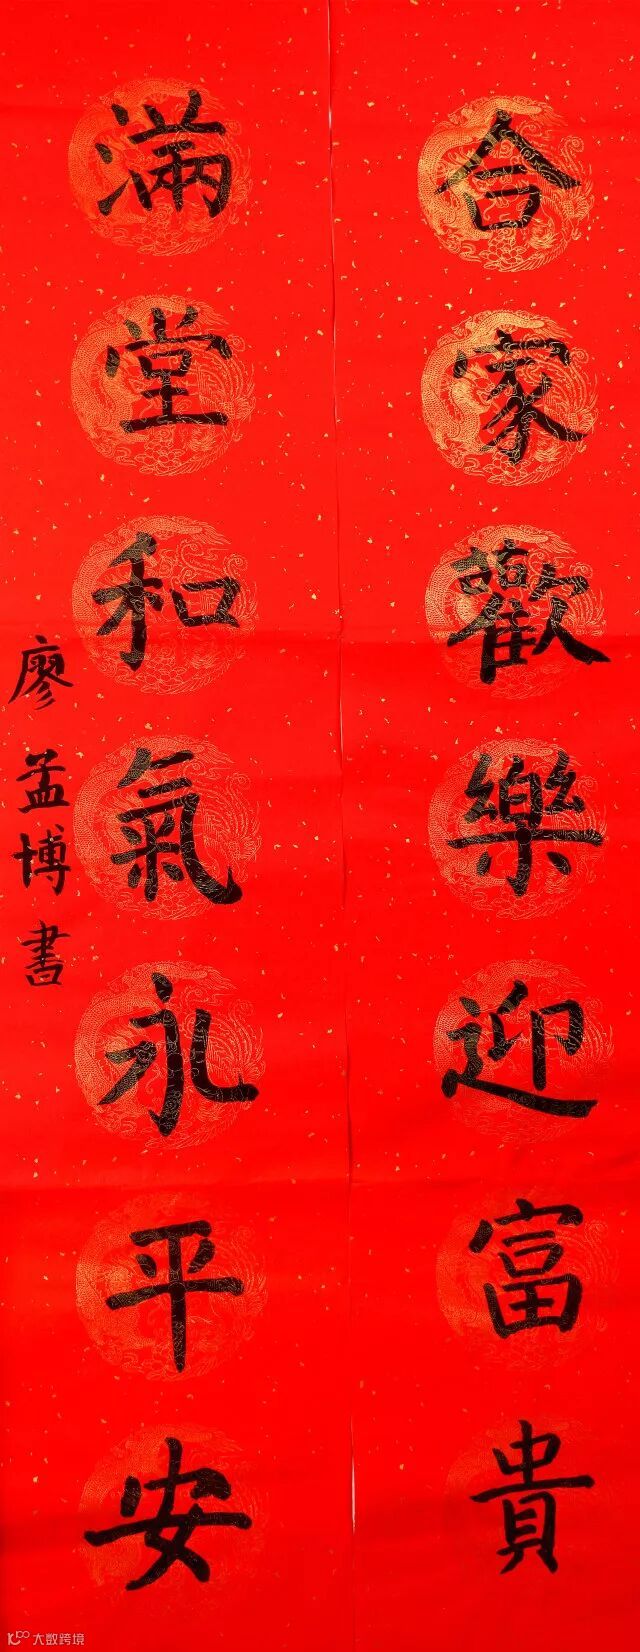 合家歡樂迎富貴
滿堂和氣永平安
廖孟博書
大数跨境